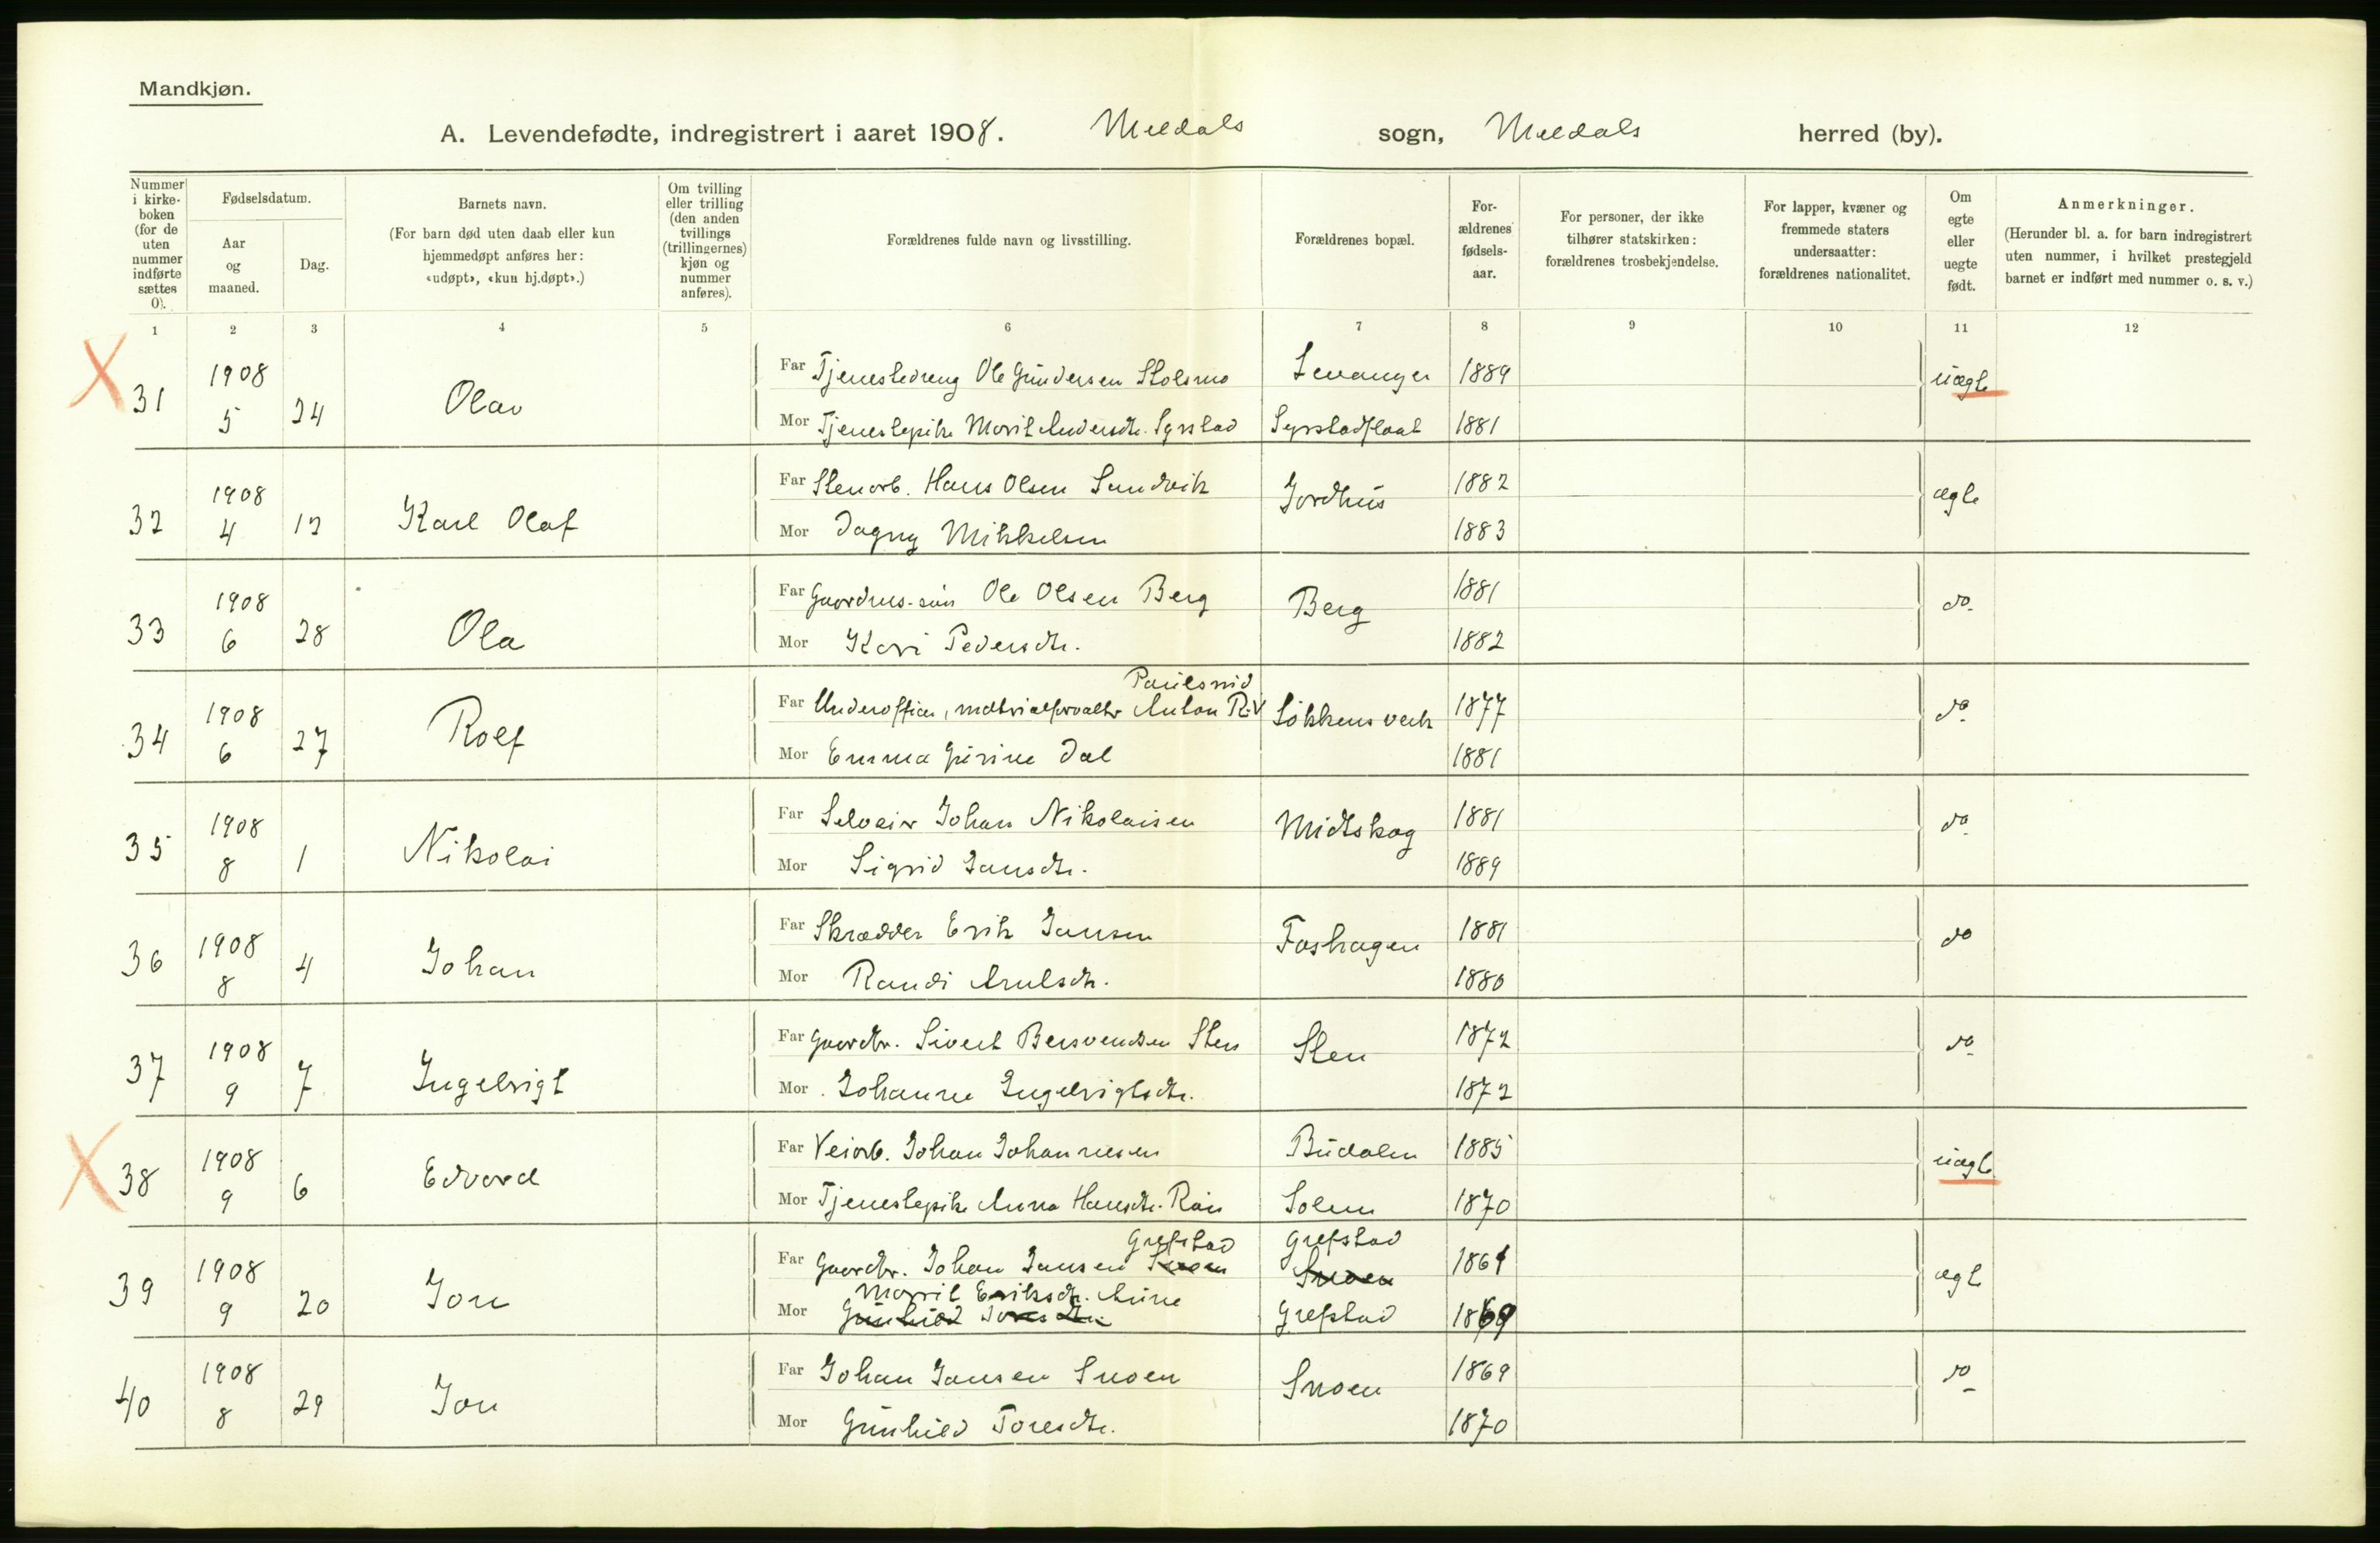 Mandkjøn.
A. Levendefødte, indregistrert i aaret 1908. Meldals sogn, Meldals herred (by).
Nummer i kirke-boken (for de uten nummer indførte sættes 0).
Fødselsdatum.
Aar og maaned.
Dag.
Barnets navn.
(For barn død uten daab eller kun hjemmedøpt anføres her: «udøpt», «kun hj.døpt».)
Om tvilling eller trilling (den anden tvillings (trillingernes) kjøn og nummer anføres).
Forældrenes fulde navn og livsstilling.
Forældrenes bopæl.
For-ældrenes fødsels-aar.
For personer, der ikke tilhører statskirken: forældrenes trosbekjendelse.
For lapper, kvæner og fremmede staters undersaatter: forældrenes nationalitet.
Om egte eller uegte født.
Anmerkninger.
(Herunder bl. a. for barn indregistrert uten nummer, i hvilket prestegjeld barnet er indført med nummer o. s. v.)
1 2 3 4 5 6 7 8 9 10 11 12
X 31 1908 5 24 Olav
Far Tjenestedreng Ole Gundersen Stolsmo Levanger 1889 uægte
Mor Tjenestepike Marit Andersdtr. Syrstad Syrstadflaat 1881
32 1908 4 12 Karl Olaf
Far Stenarb. Hans Olsen Sandvik Jordhus 1882 ægte
Mor Dagny Mikkelsen 1883
33 1908 6 28 Ola
Far Gaardms. søn Ole Olsen Berg Berg 1881 do.
Mor Kari Pedersdtr. 1882
34 1908 6 27 Rolf
Paulsrud
Far Underofficer, matrialforvalter Anton Løkkens verk 1877 do
Mor Emma Gurine Dal 1881
35 1908 8 1 Nikolai
Far Selveier Johan Nikolaisen Midtskog 1881 do
Mor Sigrid Jansdtr. 1889
36 1908 8 4 Johan
Far Skrædder Erik Jansen Foshagen 1881 do
Mor Randi Arntsdtr. 1880
37 1908 9 7 Ingebrigt
Far Gaardbr. Sivert Bersvendsen Sten Sten 1872 do
Mor Johanne Ingebrigtsdtr. 1872
X 38 1908 9 6 Edvard
Far Veiarb. Johan Johannesen Budalen 1885 uægte
Mor Tjenestepike Anna Hansdtr. Solem 1870
Grefstad Grefstad
39 1908 9 20 Jon
Far Gaardbr. Johan Jansen Snoen Snoen 1861 ægt
Marit Eriksdtr. Aune
Mor Gunhild Toresdtr. Grefstad 1869
40 1908 8 29 Jon
Far Johan Jansen Snoen Snoen 1869 do
Mor Gunhild Toresdtr. 1870